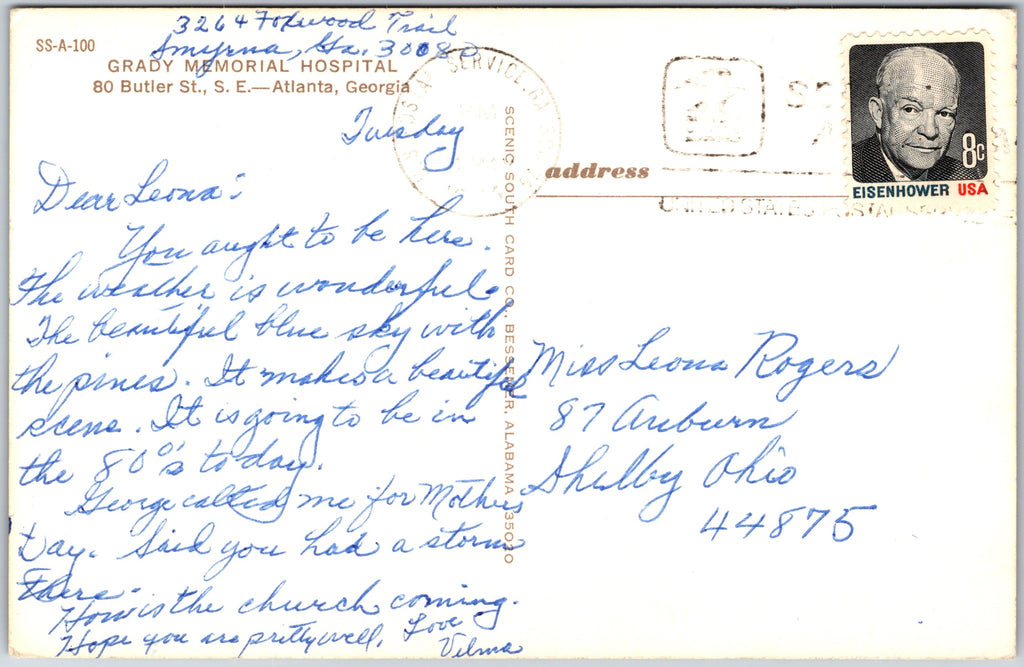 3264 Foxwood Trail
Smyrna, Ga. 3008
SS-A-100
GRADY MEMORIAL HOSPITAL
80 Butler St., S. E.—Atlanta, Georgia
Tuesday
Dear Leona:
You aught to be here.
The weather is wonderful.
The beautiful blue sky with
the pines. It makes a beautiful
scene. It is going to be in
the 80°s today.
George called me for Mothers
Day. Said you had a storm
there.
How is the church coming.
Hope you are pretty well. Love
Vilma
SCENIC SOUTH CARD CO., BESSEMER, ALABAMA 35020
SERVICE
address
UNITED STATES POSTAL
8c
EISENHOWER USA
Miss Leona Rogers
87 Auburn
Shelby Ohio
44875